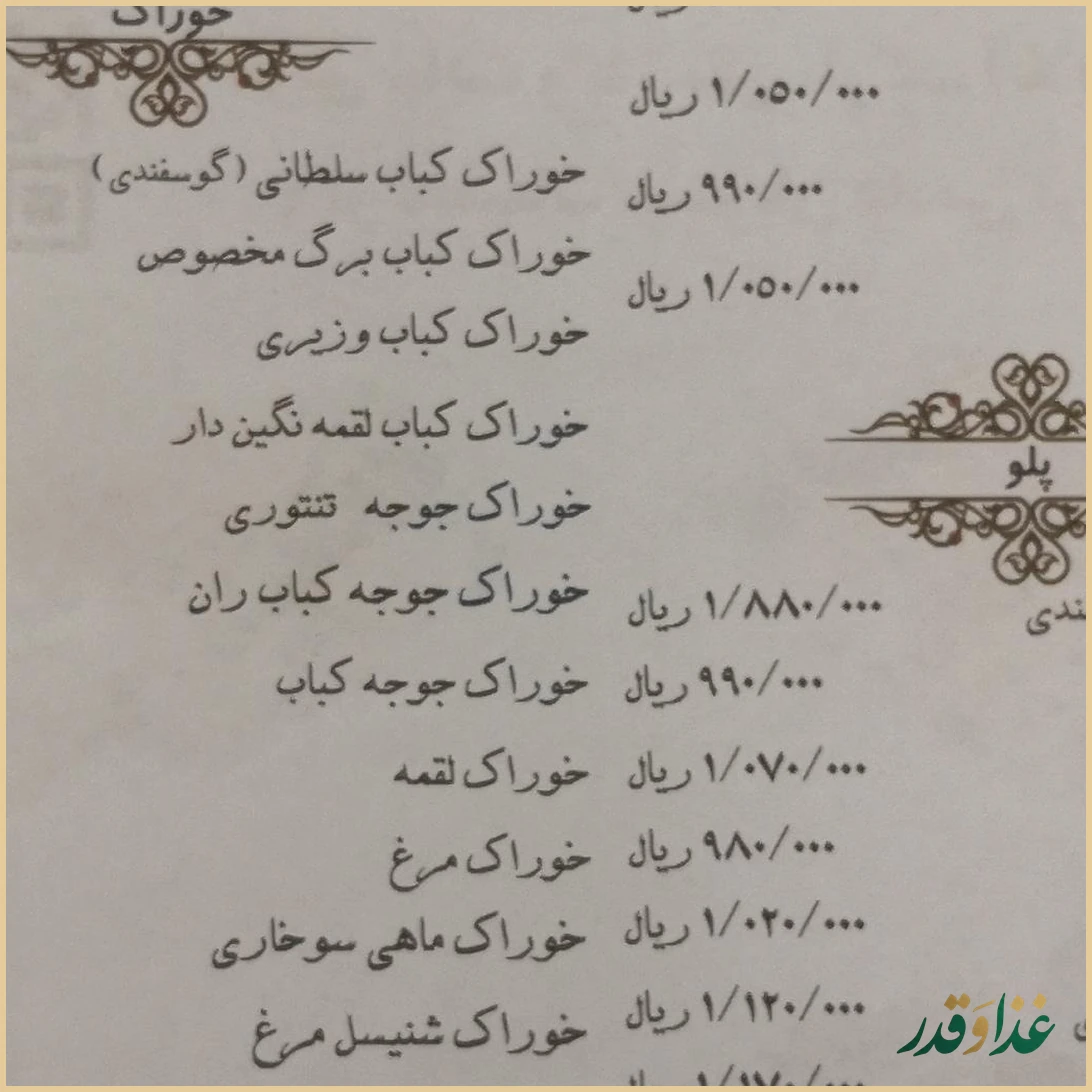 ۱/۰۵۰/۰۰۰ ریال
۹۹۰/۰۰۰ ریال
۱/۰۵۰/۰۰۰ ریال
پلو
۱/۸۸۰/۰۰۰ ریال
۹۹۰/۰۰۰ ریال
۱/۰۷۰/۰۰۰ ریال
۹۸۰/۰۰۰ ریال
۱/۰۲۰/۰۰۰ ریال
۱/۱۲۰/۰۰۰ ریال
خوراک
خوراک کباب سلطانی (گوسفندی)
خوراک کباب برگ مخصوص
خوراک کباب وزیری
خوراک کباب لقمه نگین دار
خوراک جوجه تنتوری
خوراک جوجه کباب ران
خوراک جوجه کباب
خوراک لقمه
خوراک مرغ
خوراک ماهی سوخاری
خوراک شنیسل مرغ
غذا و قدر